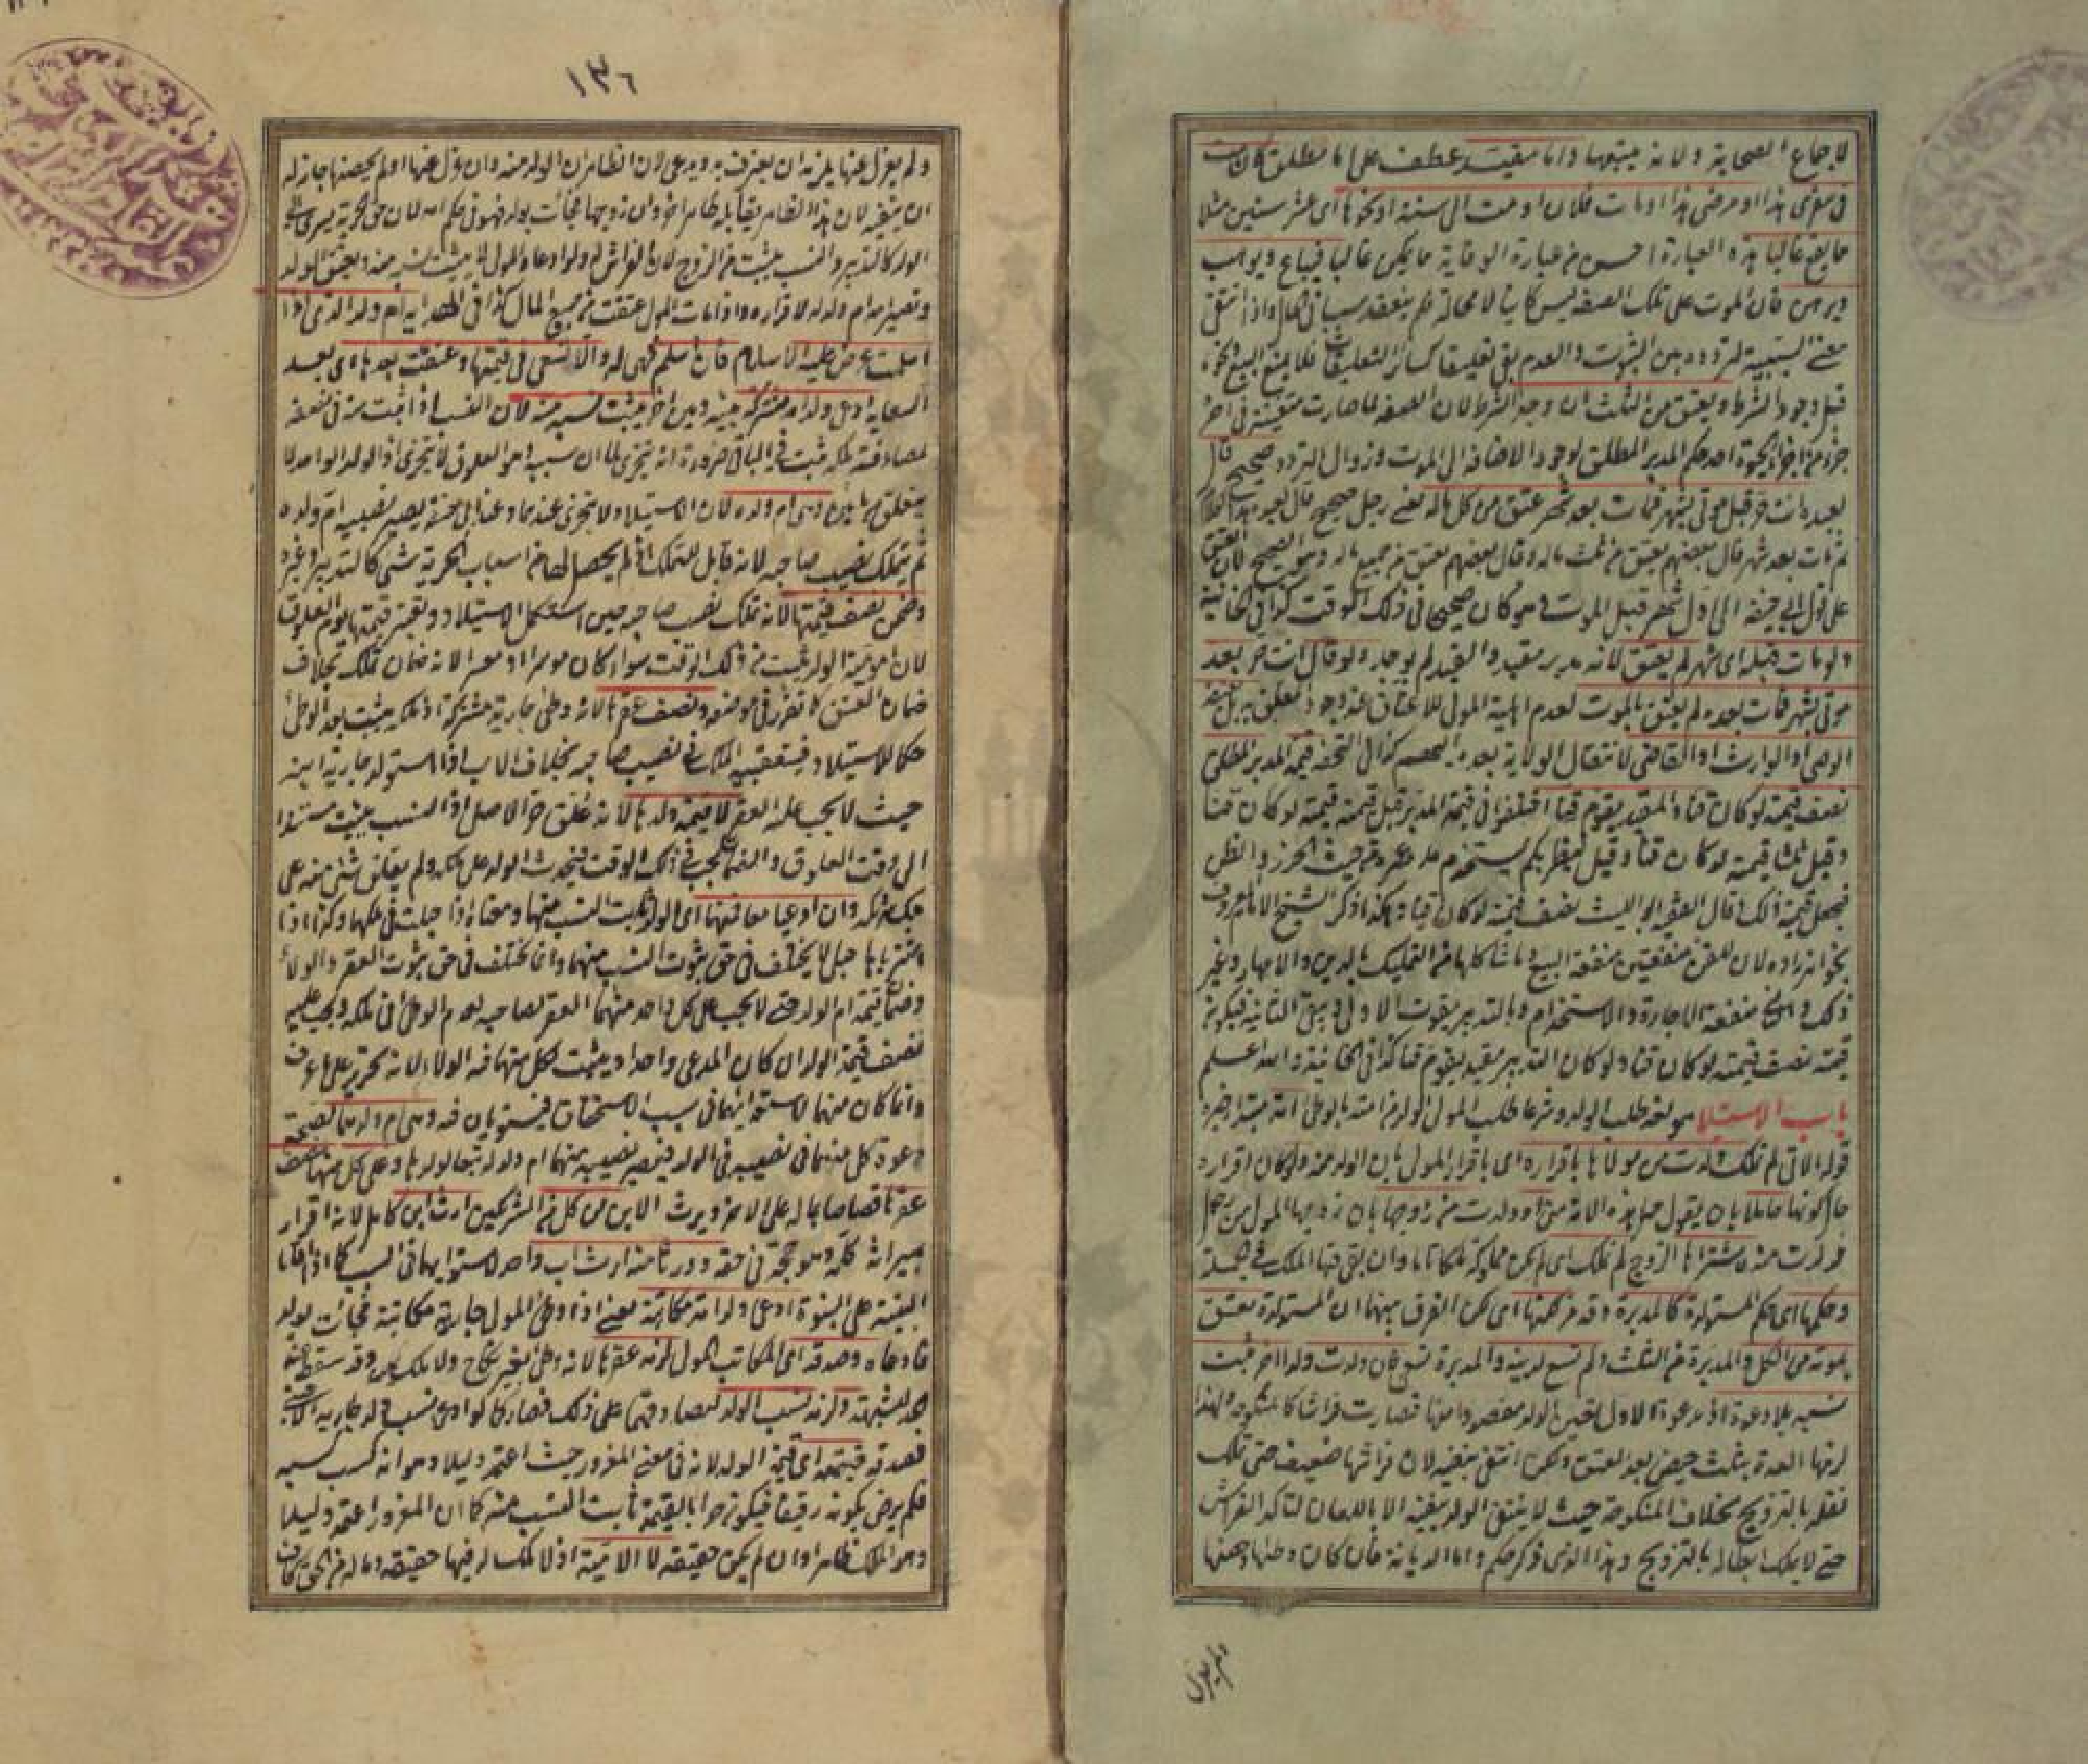 لاجماع الصحابة ولانه يتبعها واما مقيد عطف على اما مطلق كان مت
في سفري هذا او مرضي هذا او مات فلان او مت الى سنة او نحوها اي عشر سنين مثلا
مما يقع غالبا هذه العبارة احسن من عبارة الوقاية مما يمكن غالبا فيباع ويوهب
ويرهن فان الموت على تلك الصفة ليس كائنا لا محالة فلم ينعقد سببا في الحال واذا انتفى
معنى السببية لتردده بين الثبوت والعدم بقي تعليقا كسائر التعليقات فلا يمنع البيع ونحوه
قبل وجود الشرط ويعتق من الثلث ان وجد الشرط لان الصفة لما صارت متعينة في آخر
جزء من اجزاء الحيوة اخذ حكم المدبر المطلق لوجود الاضافة الى الموت وزوال التردد صحيح قال
لعبده انت حر قبل موتي بشهر فمات بعد شهر عتق من كل ماله يعني رجل صحيح قال لعبده هذا الكلام
ثم مات بعد شهر قال بعضهم يعتق من ثلث ماله وقال بعضهم يعتق من جميع ماله وهو الصحيح لان العتق
على قول ابي حنيفة الى اول شهر قبل الموت وهو كان صحيحا في ذلك الوقت كذا في الخانية
ولو مات قبله اي شهر لم يعتق لانه مدبر مقيد والقيد لم يوجد ولو قال انت حر بعد
موتي بشهر فمات بعده لم يعتق بالموت لعدم اهلية المولى للاعتاق عند وجود المعلق به بل يعتقه
الوصي او الوارث او القاضي لانتقال الولاية بعده اليهم كذا في التحفة قيمة المدبر المطلق
نصف قيمته لو كان قنا والمقيد يقوم قنا اختلفوا في قيمة المدبر قيل قيمته قيمته لو كان قنا
وقيل ثلثا قيمته لو كان قنا وقيل ينظر بكم يستخدم مدة عمره من حيث الحزر والظن
فيجعل قيمة ذلك وقال الفقيه ابو الليث نصف قيمته لو كان قنا وهكذا ذكر الشيخ الامام المعروف
بخواهر زاده لان للقن منفعتين منفعة البيع وما شاكلها من التمليك بالدين والامهار وغير
ذلك والثاني منفعة الاجارة والاستخدام وبالتدبير يفوت الاولى ويبقى الثانية فيكون
قيمته نصف قيمته لو كان قنا ولو كان التدبير مقيدا يقوم قنا كذا في الخانية والله اعلم
باب الاستيلاد هو لغة طلب الولد وشرعا طلب المولى الولد من امته بالوطئ امة مبتدأ خبره
قوله الآتي لم تملك ولدت من مولاها باقراره اي باقرار المولى بان الولد منه ولو كان اقراره
حال كونها حاملا بان يقول حمل هذه الامة مني او ولدت من زوجها بان زوجها المولى من رجل
فولدت منه فاشتراها الزوج لم تملك اي لم تكن مملوكة ملكا تاما وان بقي فيها الملك في الجملة
وحكمها اي حكم المستولدة كالمدبرة وقد مر حكمها اي لكن الفرق بينهما ان المستولدة تعتق
بموته من الكل والمدبرة من الثلث ولم تسع لدينه والمدبرة تسع فان ولدت ولدا آخر ثبت
نسبه بلا دعوة اذ بدعوة الاول تعين الولد مقصودا منها فصارت فراشا كالمنكوحة ولهذا
لزمها العدة بثلث حيض بعد العتق ولكن انتفى بنفيه لان فراشها ضعيف حتى تملك
نقله بالتزويج بخلاف المنكوحة حيث لا ينتفي الولد بنفيه الا باللعان لتأكد الفراش
حتى لا يملك ابطاله بالتزويج وهذا الذي ذكر حكم واما الديانة فان كان وطئها وحصنها
ولم يعزل
١٣٦
ولم يعزل عنها يلزمه ان يعترف به ويدعي لان الظاهر ان الولد منه وان عزل عنها او لم يحصنها جاز له
ان ينفيه لان هذا الظاهر يقابله ظاهر آخر وان زوجها فجائت بولد فهو في حكم امه لان حق الحرية يسري الى
الولد كالتدبير والنسب يثبت من الزوج لان الفراش له ولو ادعاه المولى لا يثبت نسبه منه ويعتق الولد
وتصير امه ام ولد له لاقراره واذا مات المولى عتقت من جميع المال كذا في الهداية ام ولد الذمي اذا
اسلمت عرض عليه الاسلام فان اسلم فهي له والا تسعى في قيمتها وعتقت بعدها اي بعد
السعاية ادعى ولد امة مشتركة بينه وبين آخر يثبت نسبه منه لان النسب اذا ثبت منه في نصفه
لمصادفته ملكه ثبت في الباقي ضرورة انه يتجزى لما ان سببه وهو العلوق لا يتجزى اذ الولد الواحد لا
يتعلق من مائين وهي ام ولده لان الاستيلاد لا يتجزى عندهما وعند ابي حنيفة يصير نصيبه ام ولده
ثم يتملك نصيب صاحبه لانه قابل للتملك اذ لم يحصل لها من اسباب الحرية شيء كالتدبير وغيره
وضمن نصف قيمتها لانه تملك نصيب صاحبه حين استكمل الاستيلاد وتعتبر قيمتها يوم العلوق
لان امومية الولد تثبت من ذلك الوقت سواء كان موسرا او معسرا لانه ضمان تملك بخلاف
ضمان العتق كما تقرر في موضعه ونصف عقرها لانه وطئ جارية مشتركة اذ ملكه يثبت بعد الوطئ
حكما للاستيلاد فيتعقبه الملك في نصيب صاحبه بخلاف الاب اذا استولد جارية ابنه
حيث لا يجب عليه العقر لا قيمة ولدها لانه علق حر الاصل اذ النسب يثبت مستندا
الى وقت العلوق والضمان يجب في ذلك الوقت فيحدث الولد على ملكه ولم يعلق شئ منه على
ملك شريكه وان ادعياه معا فهما اي الولد ثابت النسب منهما ومعناه اذا حبلت في ملكهما وكذا اذا
اشترياها حبلى لا يختلف في حق ثبوت النسب منهما وانما يختلف في حق ثبوت العقر والولاء
وضمان قيمة ام الولد حتى لا يجب على كل واحد منهما العقر لصاحبه لعدم الوطئ في ملكه ويجب عليه
نصف قيمة الولد ان كان المدعي واحدا ويثبت لكل منهما فيه الولاء لانه تحرير على ما عرف
وانما كان منهما لاستوائهما في سبب الاستحقاق فيستويان فيه وهي ام ولدهما لصحة
دعوة كل منهما في نصيبه في الولد فيصير نصيبه منهما ام ولد له تبعا لولدها وعلى كل منهما نصف
عقرها قصاصا بما له على الآخر ويرث الابن من كل من الشريكين ارث ابن كامل لانه اقرار
بميراثه كله وهو حجة في حقه وورثا منه ارث اب واحد لاستوائهما في السبب كما اذا اقاما
البينة على البنوة ادعى ولد امة مكاتبه يعني اذا وطئ المولى جارية مكاتبه فجائت بولد
فادعاه وصدقه اي المكاتب المولى لزمه عقرها لانه وطئ بغير نكاح ولا ملك يمين وقد سقط عنه
الحد للشبهة ولزمه نسب الولد لتصادقهما على ذلك فصار كما لو ادعى نسب ولد جارية الاجنبي
فصدقه قيمته اي قيمة الولد لانه في معنى المغرور حيث اعتمد دليلا وهو انه كسب كسبه
فلم يرض بكونه رقيقا فيكون حرا بالقيمة ثابت النسب منه كما ان المغرور اعتمد دليلا
وهو الملك ظاهرا وان لم يكن حقيقة لا الامية اذ لا ملك له فيها حقيقة وما له من الحق كاف